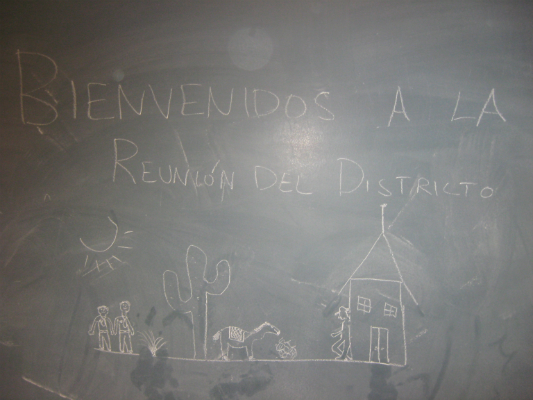 BIENVENIDOS A LA
REUNIÓN DEL DISTRICTO